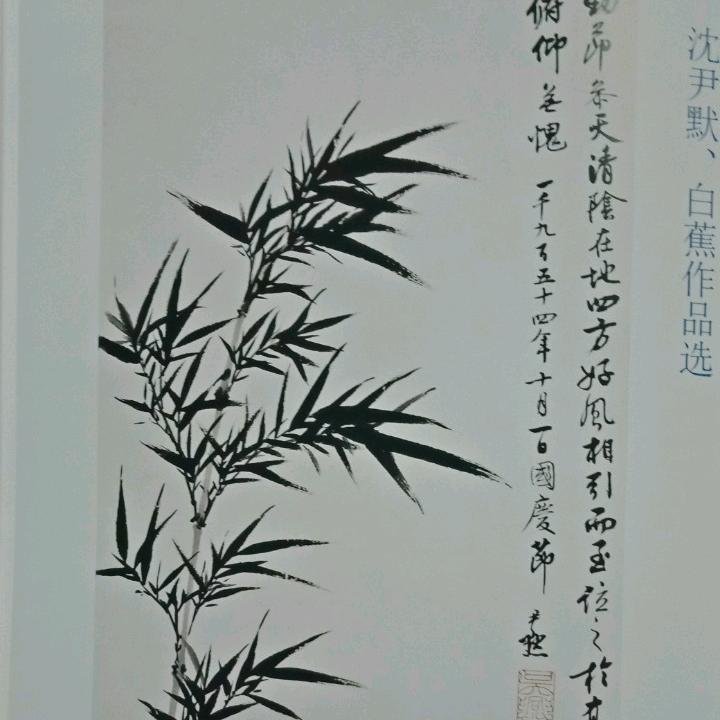 沈尹默、白蕉作品选
勁節參天清陰在地四方好風相引而至位之於
俯仰無愧 一千九百五十四年十月一日國慶節 尹默